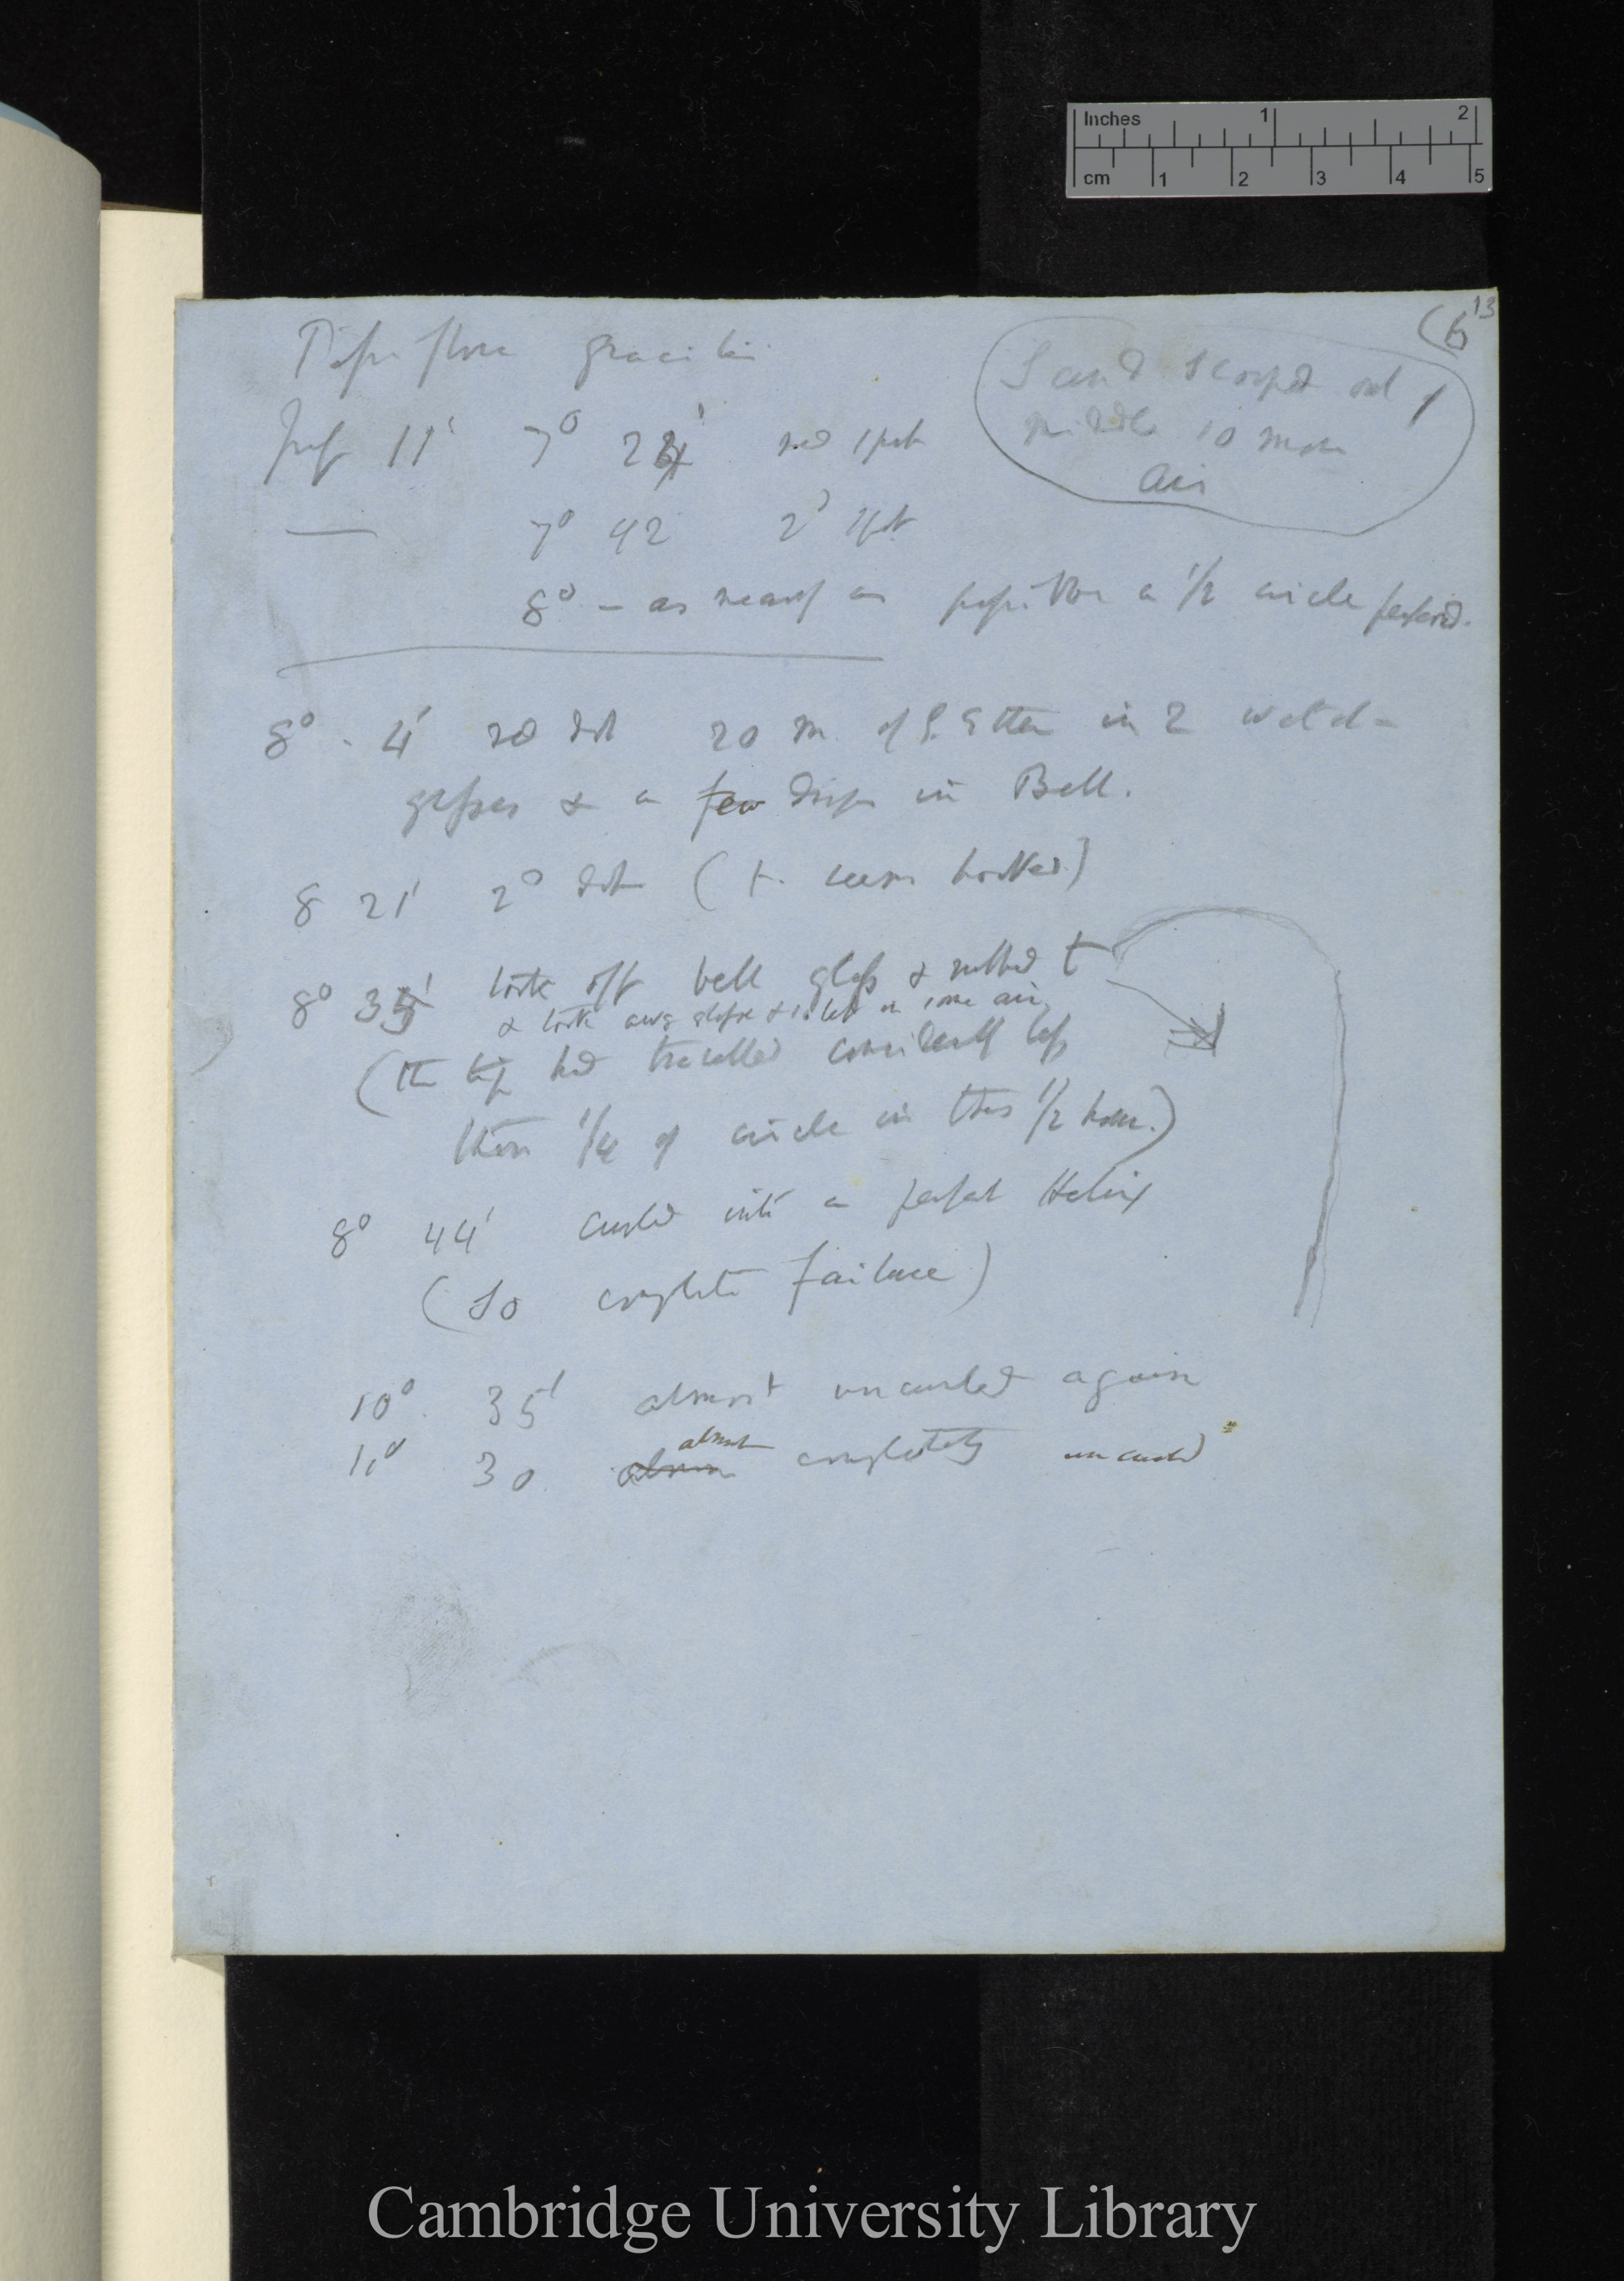 Inches 1 2
cm 1 2 3 4 5
(6 13
Passiflora gracilis
Sand scooped out
middle 10 more
air
11' 7° 24' red spot
— 7° 42 2° spot
8° – as nearly as possible a 1/2 circle performed.
8° . 4' red dot 20 m of S. Ether in 2 watch-
glasses & a few drops in Bell.
8 21' 2° dot (t. seems hooked)
8° 35' took off bell glass & rubbed t
& took away glasses & in air
(the tip had travelled considerably less
than 1/4 of circle in this 1/2 hour.)
8° 44' curled into a perfect Helix
(So complete failure)
10° 35' almost uncurled again
almost
11° 30 completely uncurled
Cambridge University Library